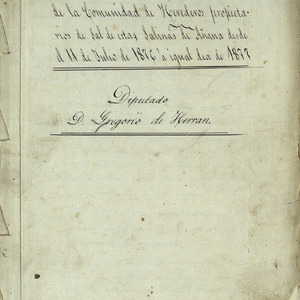 de la Comunidad de Herederos propieta-
rios de Sal de estas Salinas de Añana desde
el 11 de Julio de 1876 a igual dia de 1877
Diputado
D. Gregorio de Herran.